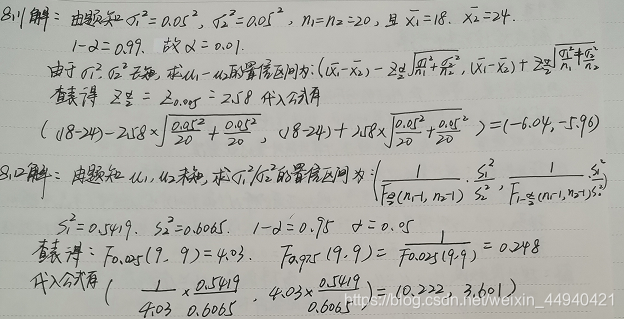 8.11解: 由题知 σ₁²=0.05², σ₂²=0.05², n₁=n₂=20, 且 x̄₁=18. x̄₂=24.
1-α=0.99. 故 α=0.01.
由于 σ₁² σ₂² 已知, 求 u₁-u₂的置信区间为: ((x̄₁-x̄₂) - Zα/2 √(σ₁²/n₁+σ₂²/n₂), (x̄₁-x̄₂) + Zα/2 √(σ₁²/n₁+σ₂²/n₂)
查表得 Zα/2 = Z0.005 = 2.58 代入公式有
( (18-24)-2.58×√(0.05²/20 + 0.05²/20), (18-24)+2.58×√(0.05²/20 + 0.05²/20) ) = (-6.04, -5.96)
8.12解: 由题知 u₁, u₂未知, 求σ₁²/σ₂²的置信区间为: ( 1/Fα/2(n₁-1, n₂-1) · S₁²/S₂², 1/F1-α/2(n₁-1, n₂-1) · S₁²/S₂² )
S₁²=0.5419. S₂²=0.6065. 1-α=0.95 α=0.05
查表得: F0.025(9, 9)=4.03. F0.975(9,9)= 1/F0.025(9,9) = 0.248
代入公式有 ( 1/4.03 × 0.5419/0.6065 , 4.03× 0.5419/0.6065 ) = (0.222, 3.601)
https://blog.csdn.net/weixin_44940421